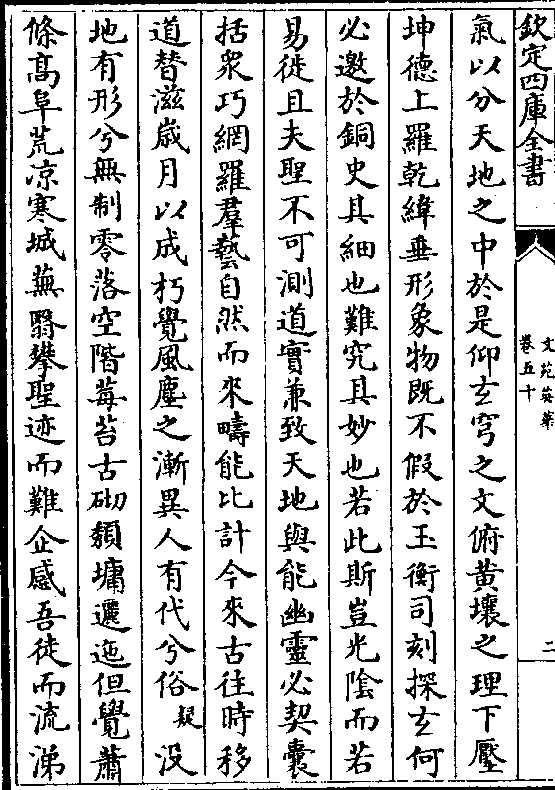 欽定四庫全書
文苑英華
卷五十
二
氣以分天地之中於是仰玄穹之文俯黄壤之理下壓
坤德上羅乾緯垂形象物既不假於玉衡司刻探玄何
必邀於銅史其細也難究其妙也若此斯豈光陰而若
易徒且夫聖不可測道實兼致天地與能幽靈必契囊
括衆巧網羅羣藝自然而來疇能比計今來古往時移
道替滋歲月以成朽覺風塵之漸異人有代兮俗疑没
地有形兮無制零落空階莓苔古砌頽墉邐迤但覺蕭
條高阜荒凉寒城蕪翳攀聖迹而難企感吾徒而流涕